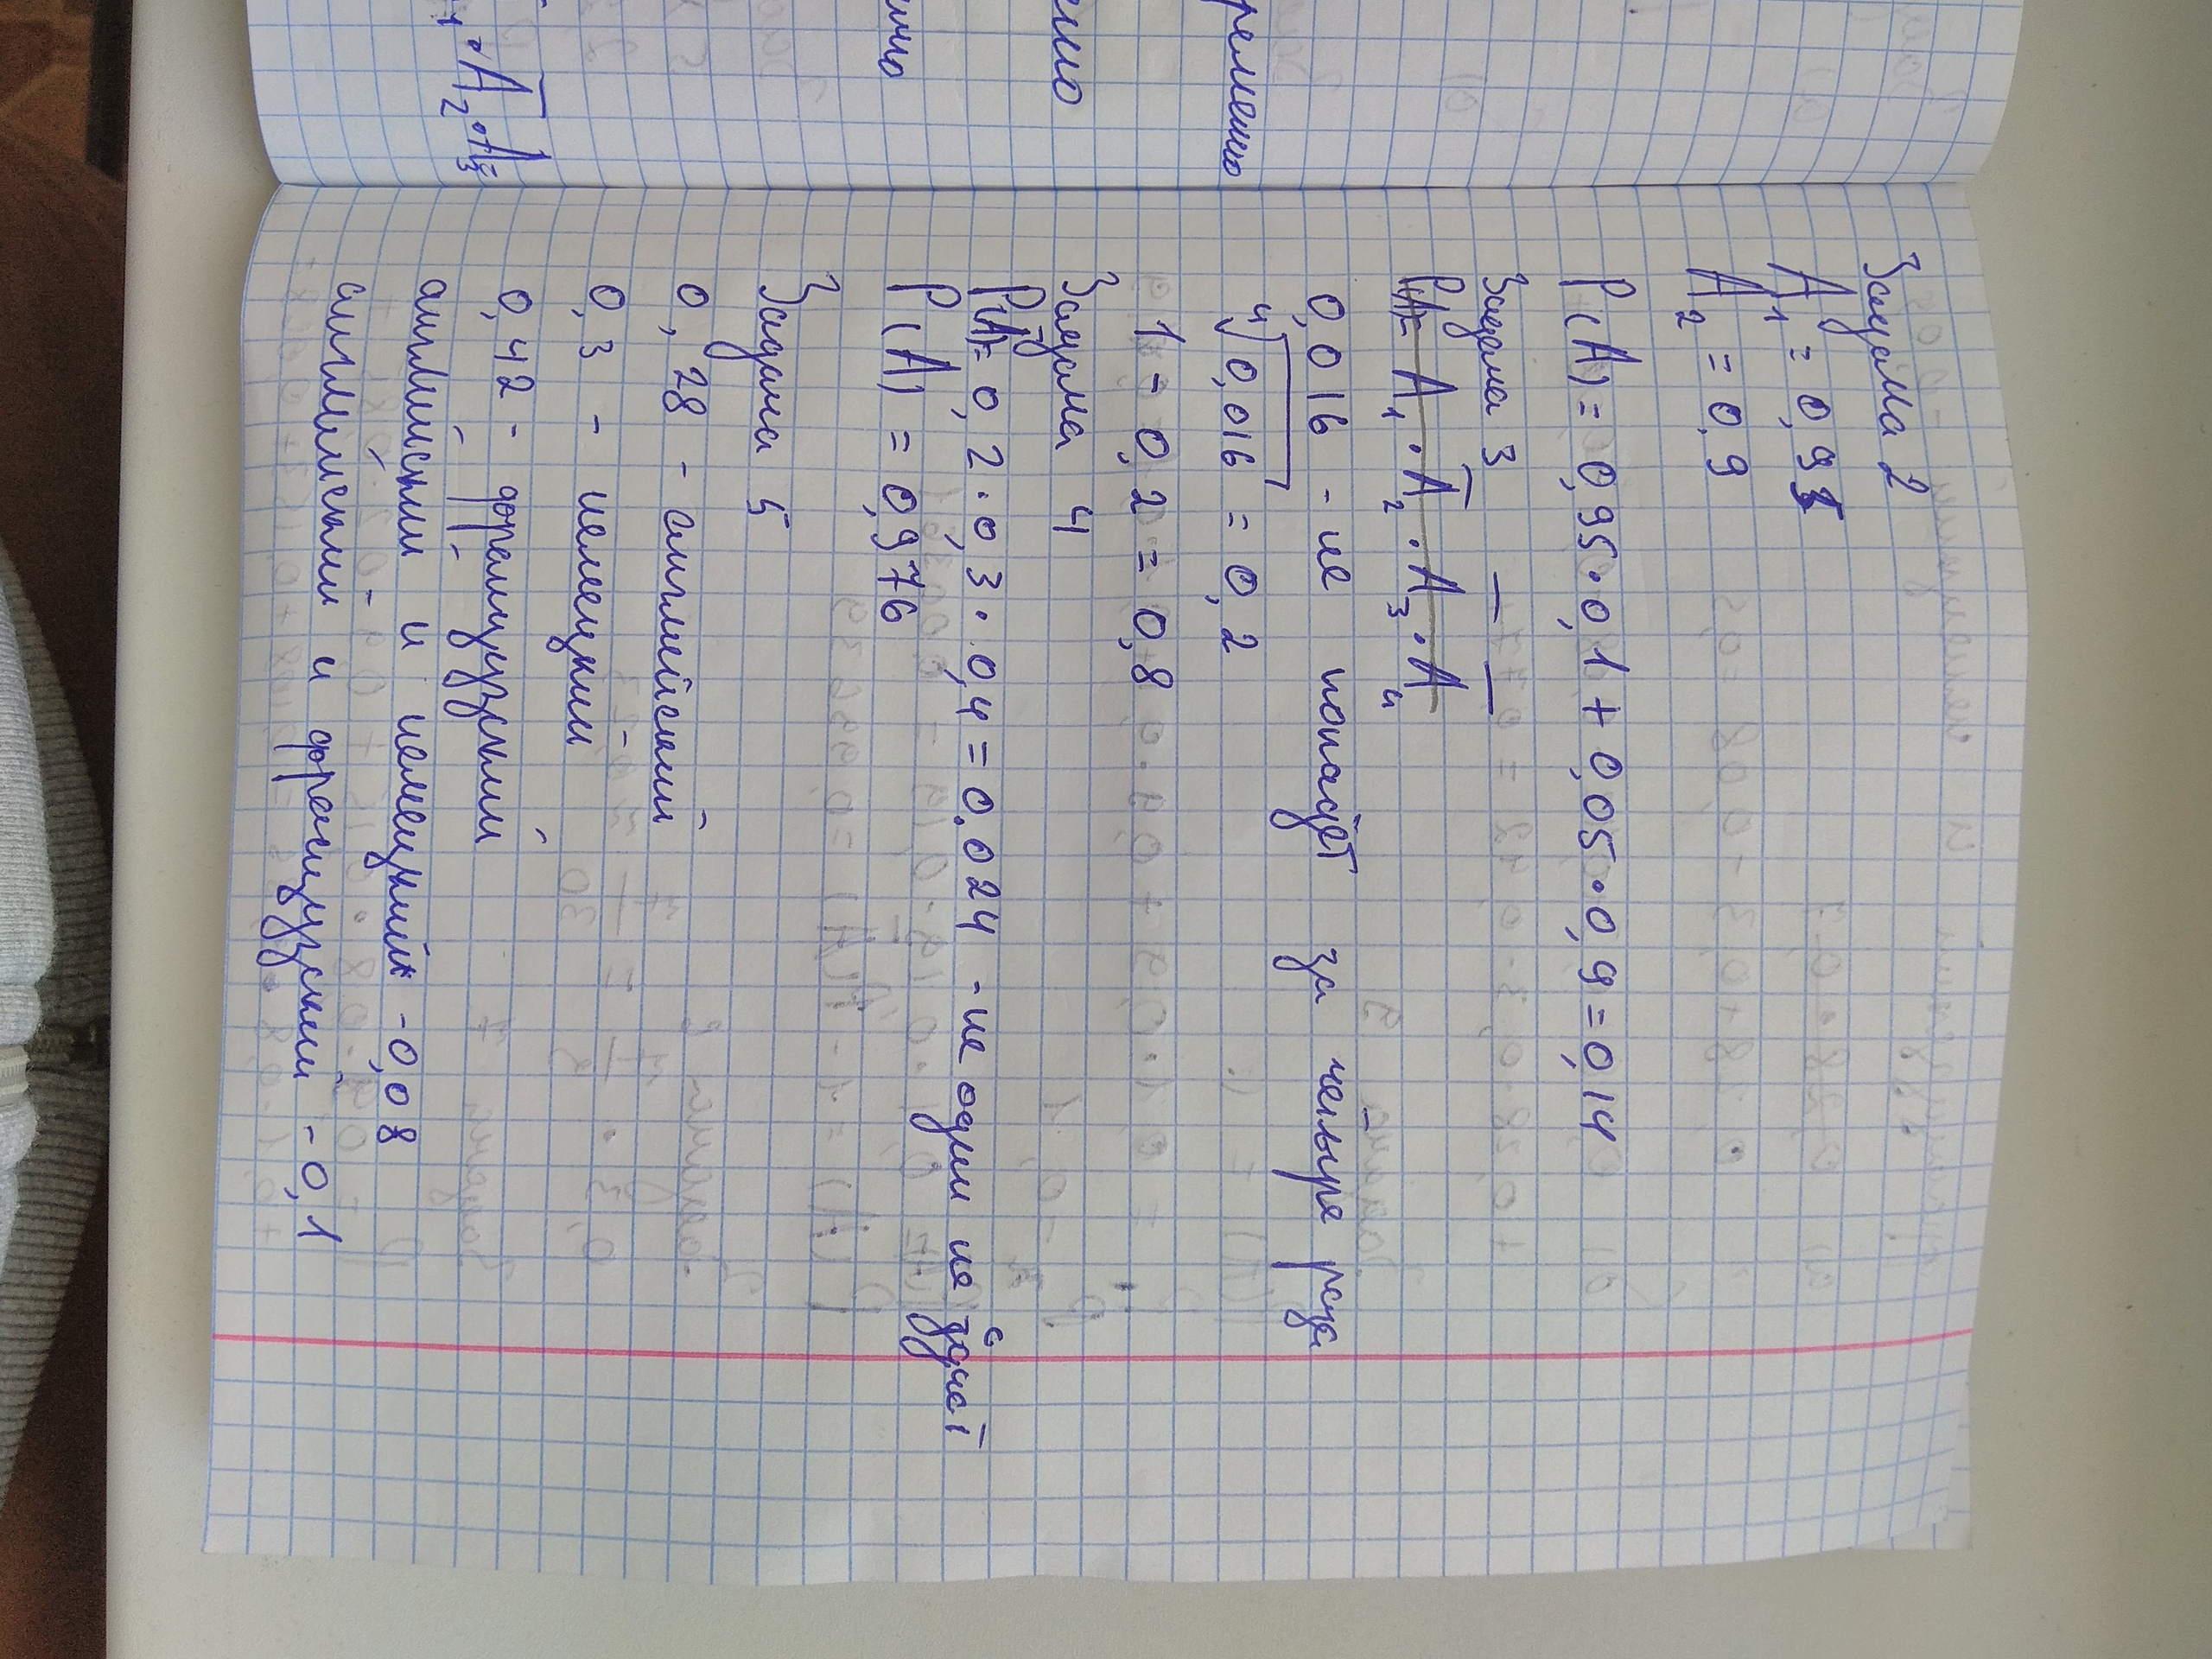 Задача 2
A₁ = 0,95
A₂ = 0,9
P(A) = 0,95 · 0,1 + 0,05 · 0,9 = 0,14
Задача 3
P(A)= A₁ · A̅₂ · A̅₃ · A̅₄
0,016 - не попадёт за четыре раза
∜0,016 = 0,2
1 - 0,2 = 0,8
Задача 4
P(A̅)= 0,2 · 0,3 · 0,4 = 0.024 - не один не сдаст
P(A) = 0,976
Задача 5
0,28 - английский
0,3 - немецкий
0,42 - французский
английский и немецкий - 0,08
английский и французский - 0,1
ременно
нно
нно
₁ · A̅₂ · A₃=